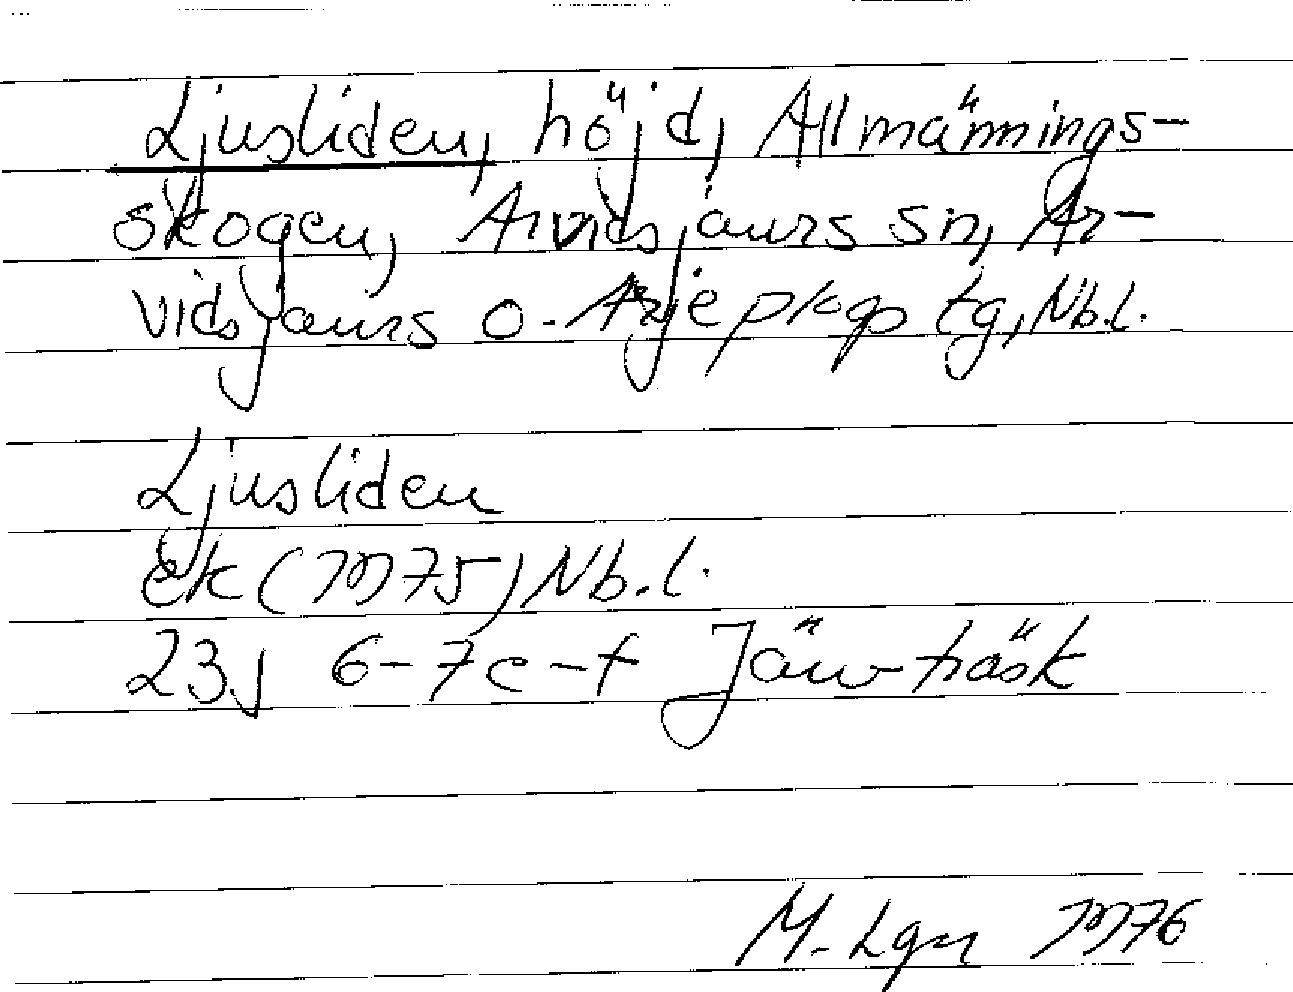 Ljusliden, höjd, Allmännings-
skogen, Arvidsjaurs sn, Ar-
vidsjaurs o. Arjeplogs tg, Nb.l.
Ljusliden
ek (1975) Nb.l.
23J 6-7e-f Järvträsk
M. Lgn 1976